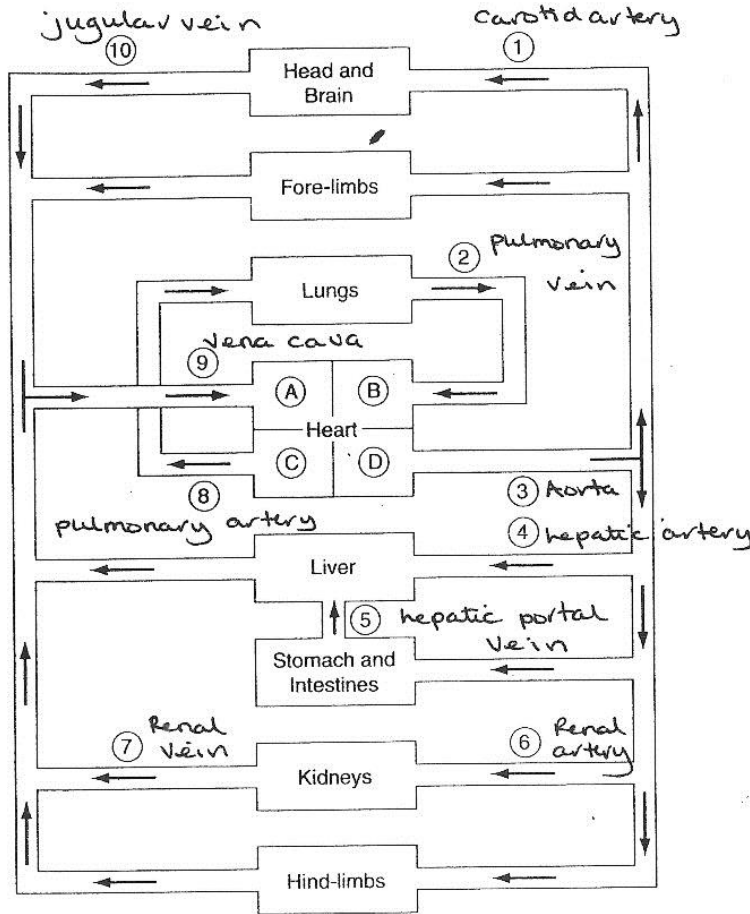 jugular vein
carotid artery
10
1
Head and
Brain
Fore-limbs
2
pulmonary
vein
Lungs
vena cava
9
A
B
Heart
C
D
8
3 Aorta
pulmonary artery
4 hepatic artery
Liver
5 hepatic portal
vein
Stomach and
Intestines
7
Renal
vein
6
Renal
artery
Kidneys
Hind-limbs